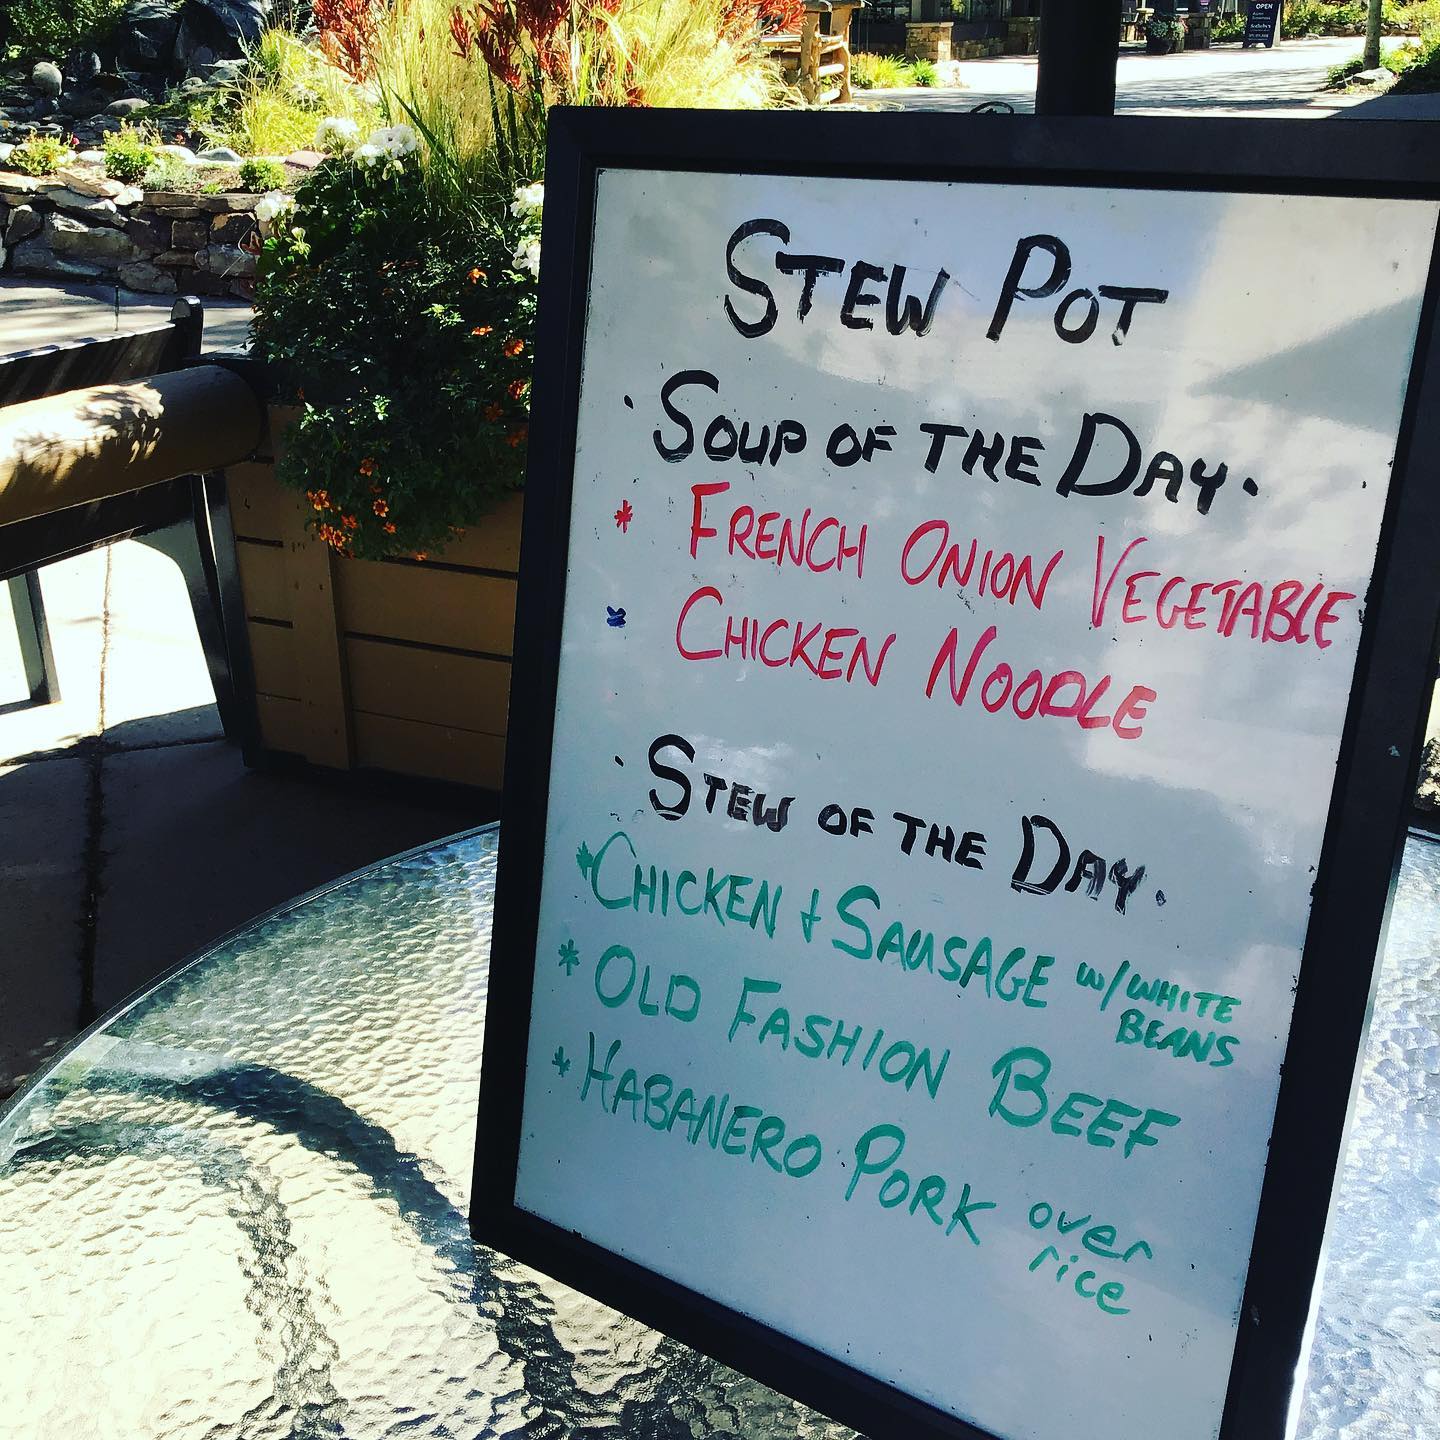 OPEN
STEW POT
· SOUP OF THE DAY ·
* FRENCH ONION VEGETABLE
* CHICKEN NOODLE
· STEW OF THE DAY ·
* CHICKEN + SAUSAGE W/ WHITE BEANS
* OLD FASHION BEEF
* HABANERO PORK over rice